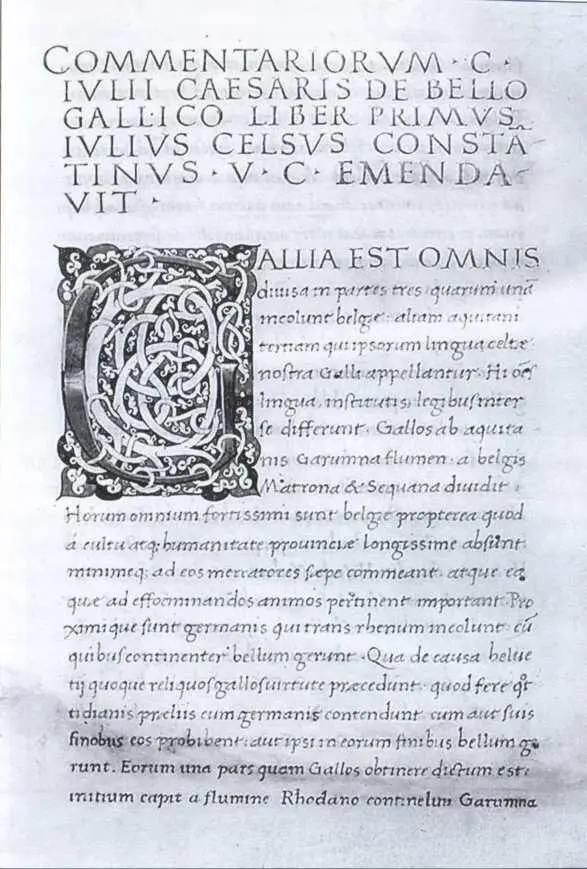 COMMENTARIORVM · C ·
IVLII CAESARIS DE BELLO
GALLICO LIBER PRIMVS
IVLIVS CELSVS CONSTÃ
TINVS · V · C · EMENDA
VIT ·
GALLIA EST OMNIS
diuisa in partes tres quarum unã
incolunt belgæ aliam aquitani
tertiam qui ipsorum lingua celtæ
nostra Galli appellantur. Hi oẽs
lingua, institutis, legibus inter
se differunt. Gallos ab aquita
nis Garumna flumen a belgis
Matrona & Sequana diuidit
Horum omnium fortissimi sunt belgæ propterea quod
a cultu atq; humanitate prouinciæ longissime absunt
minimeq; ad eos mercatores sæpe commeant atque ea
quæ ad effoeminandos animos pertinent important Pro
ximique sunt germanis qui trans rhenum incolunt cũ
quibus continenter bellum gerunt. Qua de causa helue
tij quoque reliquos gallos uirtute præcedunt quod fere
tidianis præliis cum germanis contendunt cum aut suis
finobus eos prohibent aut ipsi in eorum finibus bellum ge
runt. Eorum una pars quam Gallos obtinere dictum est
initium capit a flumine Rhodano continetur Garumna